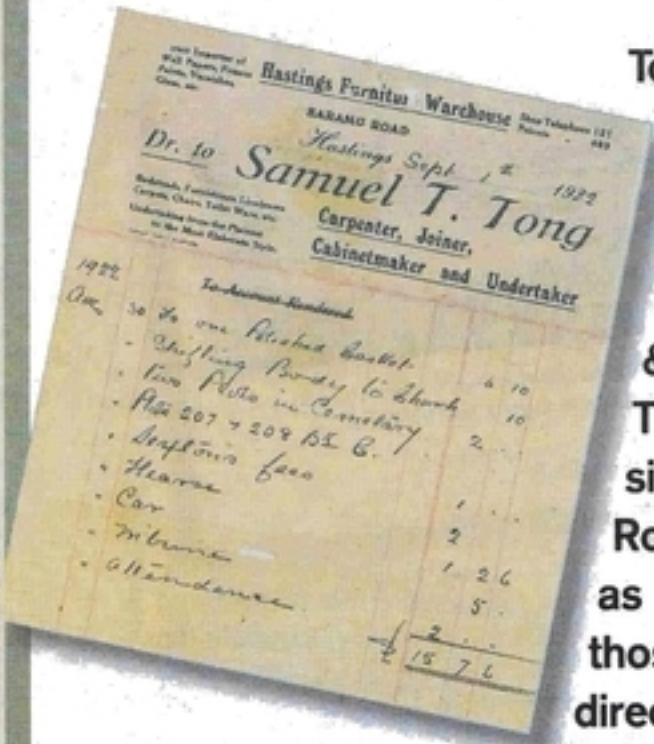 To
Direct Importer of
Wall Papers, Picture
Paints, Varnishes,
Glass, etc.
Hastings Furnitur Warehouse
Shop Telephone 127
Private 689
KARAMU ROAD
Hastings Sept 1st 1922
Dr. to Samuel T. Tong
Bedsteads, Furnishings, Linoleums
Carpets, Chairs, Toilet Ware, etc.
Undertaking from the Plainest
to the Most Elaborate Style.
Carpenter, Joiner,
Cabinetmaker and Undertaker
1922
To Account Rendered
Aug 30 To one Polished Casket 6 10
" Shifting Body to Church 10
" Two Plots in Cemetery 2 . .
" 207 & 208 Bk C.
" Sextons fees 1 . .
" Hearse 2
" Car 1 2 6
" Tribune 5 .
" Attendance 2 . .
£ 15 7 6
&
T
si
Ro
as
thos
direc